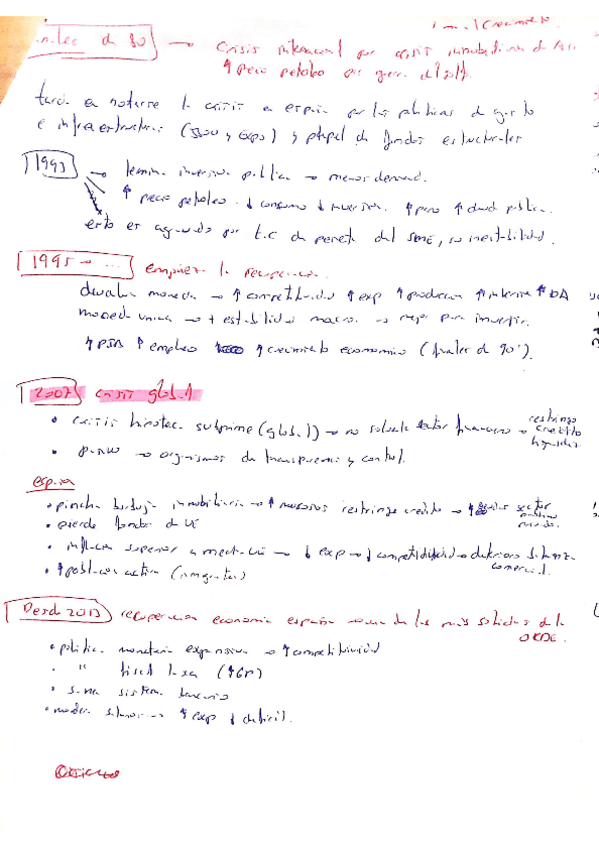 Crecimiento
de 90 → crisis internacional por crisis inmobiliaria de
↑ precio petroleo por guerra del golfo
tarda en notarse la crisis en españa por las politicas de gasto
e infraestructuras (JJOO y Expo) y papel de fondos estructurales
1993 → termina inversion publica → menor demand.
↑ precio petroleo. ↓ consumo ↓ inversion. ↑ paro ↑ deud public.
esto es agravado por t.c de peseta del SME, inestabilidad.
1995 → ... empieza la recuperacion
devalua moneda → ↑ competitividad ↑ exp ↑ produccion ↑ DA
moneda unica → + estabilidad macro. → mejor para invertir.
↑ PIB ↑ empleo ↑ crecimiento economico (finales de 90').
2007 crisis global
• crisis hipotec. subprime (global) → no solvente sector financiero → restringe
credito
liquidez
• → organismos de transparencia y control.
españa
• pincha burbuja inmobiliaria → ↑ morosos restringe credito → ↑ sector
privado.
• pierde fondos de UE
• inflacion superior a media UE → ↓ exp → ↓ competitividad → deterioro
comercial.
• ↑ poblacion activa (inmigrantes)
Desde 2013 recuperacion economia española una de las mas solidas de la
OCDE.
• politica monetaria expansiva → ↑ competitividad
• " fiscal laxa (↑GP)
• sanea sistema bancario
• modera salarios → ↑ exp ↓ deficit.